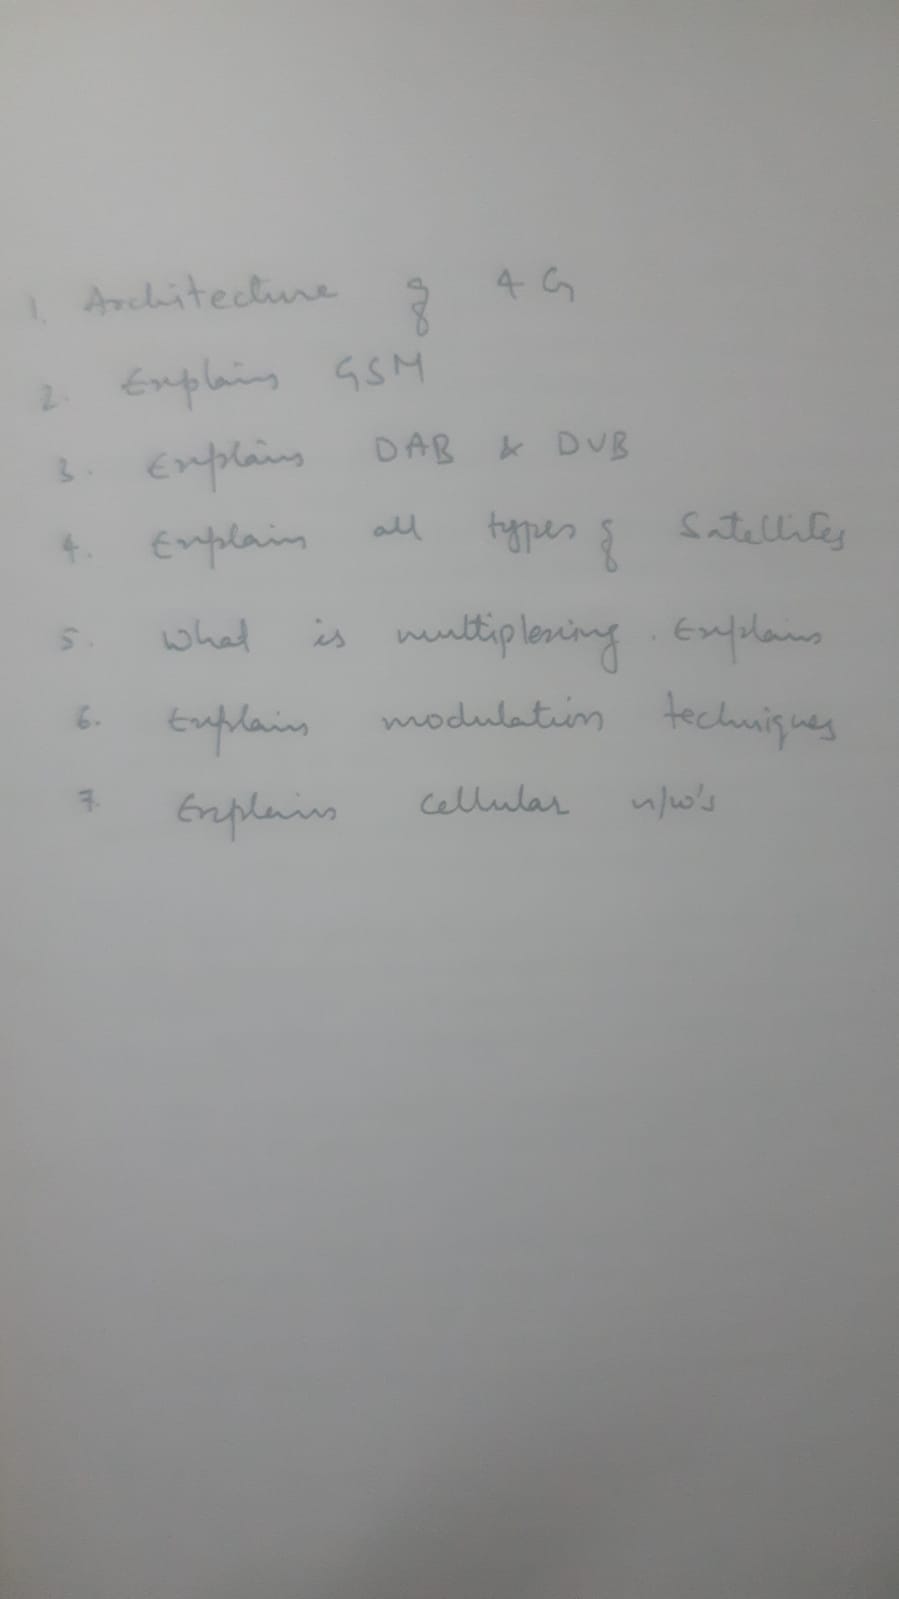 1. Architecture of 4G
2. Explain GSM
3. Explain DAB & DVB
4. Explain all types of Satellites
5. What is multiplexing. Explain
6. Explain modulation techniques
7. Explain cellular n/w's